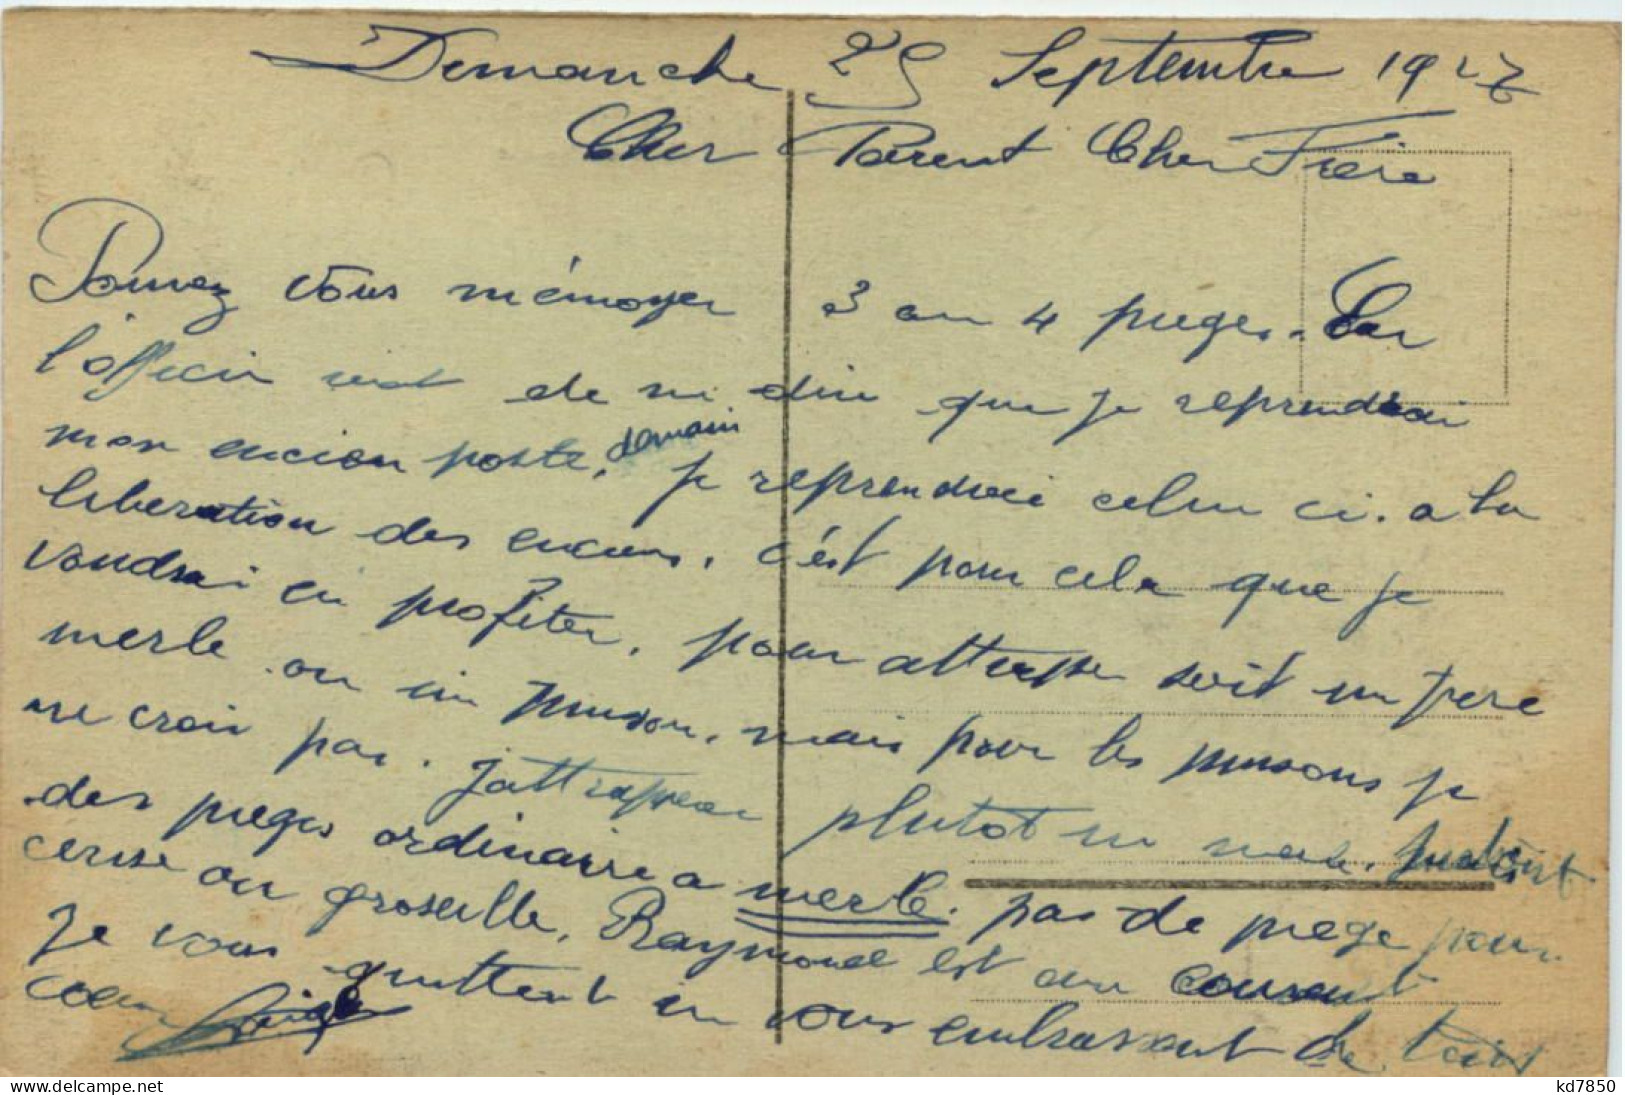 Dimanche 25 Septembre 1927
Cher Parent Cher Frère
Pouvez vous m'émoyer 3 ou 4 pieges. Car
l'officier vient de me dire que je reprendrai
mon encien poste, demain je reprendrai celui ci. a la
liberation des enciens, c'est pour cela que je
voudrai en profiter, pour attraper soit un
merle ou un pinson, mais pour les pinsons je
ne crois pas. J'attraperai plutot un merle.
des pieges ordinaire a merle. pas de piege pour
cerise ou groseille, Raymond est au courant
Je vous quittent en vous embrassant de tout
coeur
kd7850